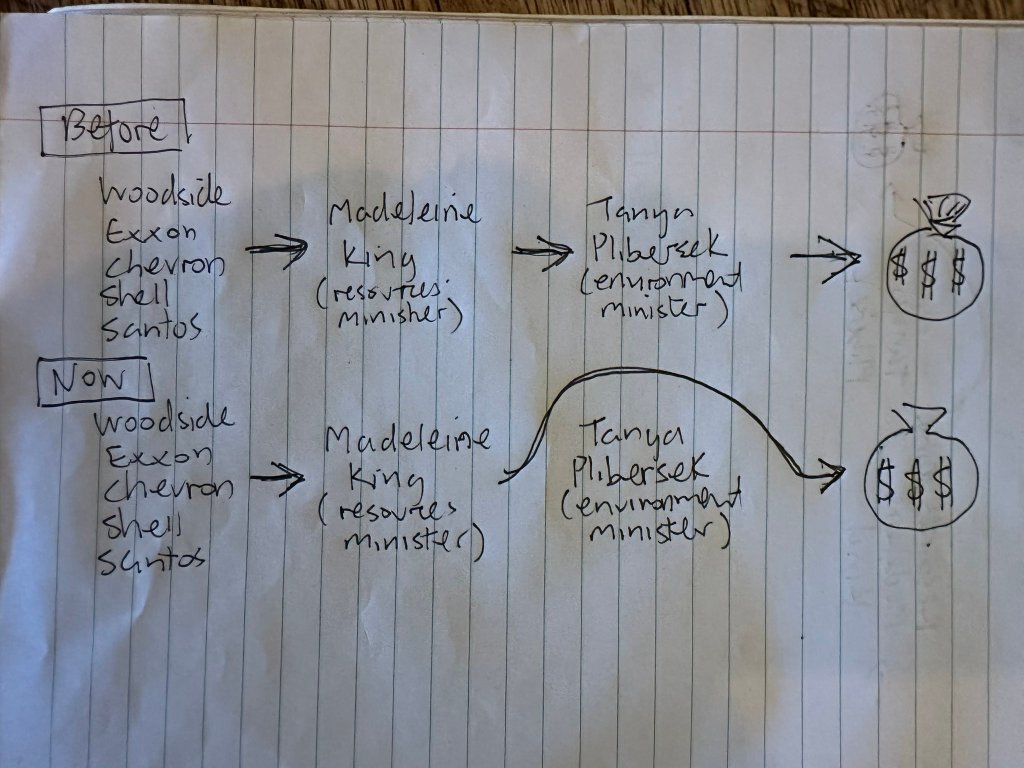 Before
Woodside
Exxon
Chevron
Shell
Santos
Madeleine
King
(resources
minisher)
Tanya
Plibersek
(environment
minister)
$ $ $
Now
Woodside
Exxon
Chevron
Shell
Santos
Madeleine
King
(resources
minister)
Tanya
Plibersek
(environment
minister)
$ $ $